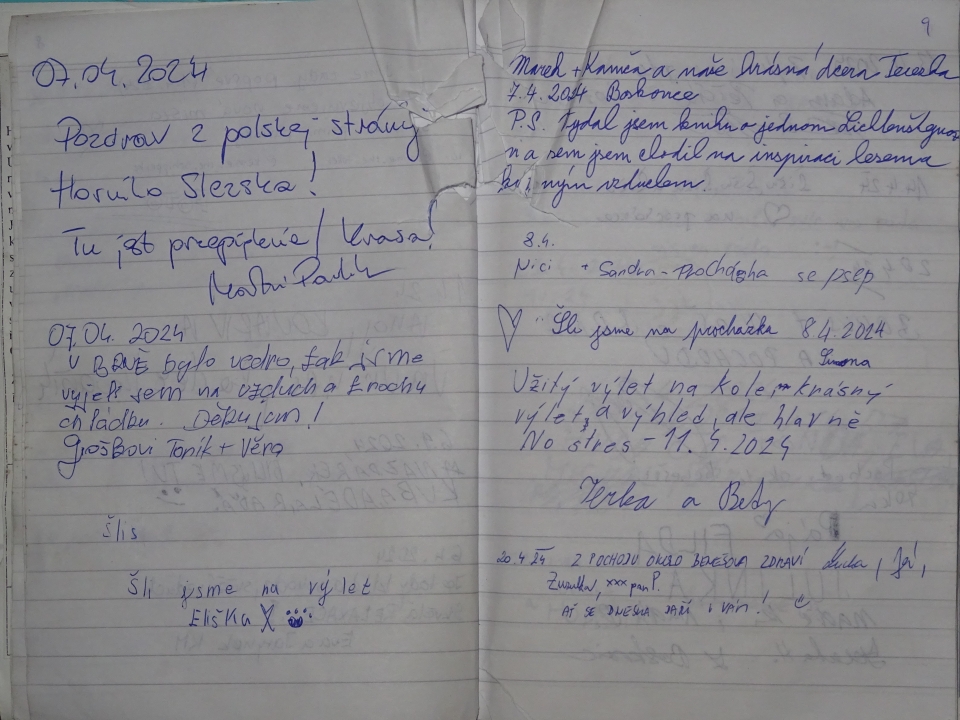 07.04.2024
Pozdrav z polskej strány
Horniho Slezska!
Tu jest przepięknie! Krasa!
07.04. 2024
V BRNĚ bylo vedro, tak jsme
vyjeli sem na vzduch a trochu
chládku. Děkujem!
Groškovi Toník + Věra
Šlis
Šli jsme na výlet
Eliška
9
Marek + Kamča a naše krásná dcera Terezka
7.4.2024 Boskovice
P.S. Vydal jsem knihu o jednom
a sem jsem chodil na inspiraci
vzduchem.
8.4.
Nici + Sandra - Procházka se psep
Šli jsme na procházka 8.4.2024
Simona
Užitý výlet na kole, krásný
výlet, a výhled, ale hlavně
No stres - 11.4.2024
Verka a Bety
20.4 24 Z POCHODU OKOLO BENEŠOVA ZDRAVÍ Luka, Já,
Zuzulka, xxx pan P.
AŤ SE DNESKA DAŘÍ I VÁM!